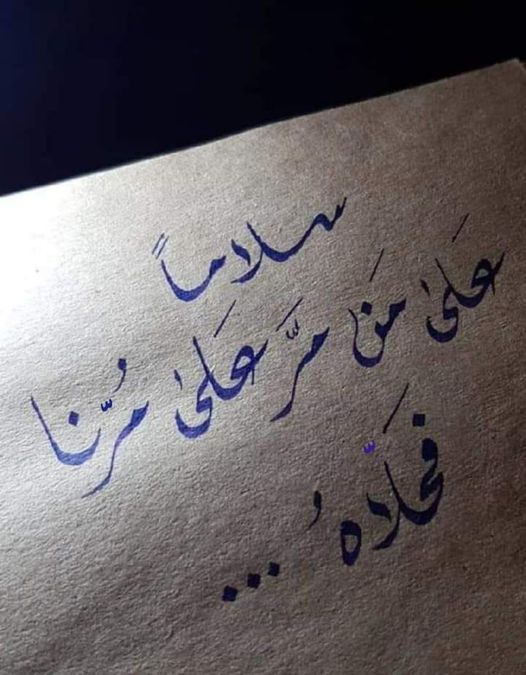 سلاماً
علىٰ مَن مرَّ عَلىٰ مُرّنا
فَحَلّاهُ ...